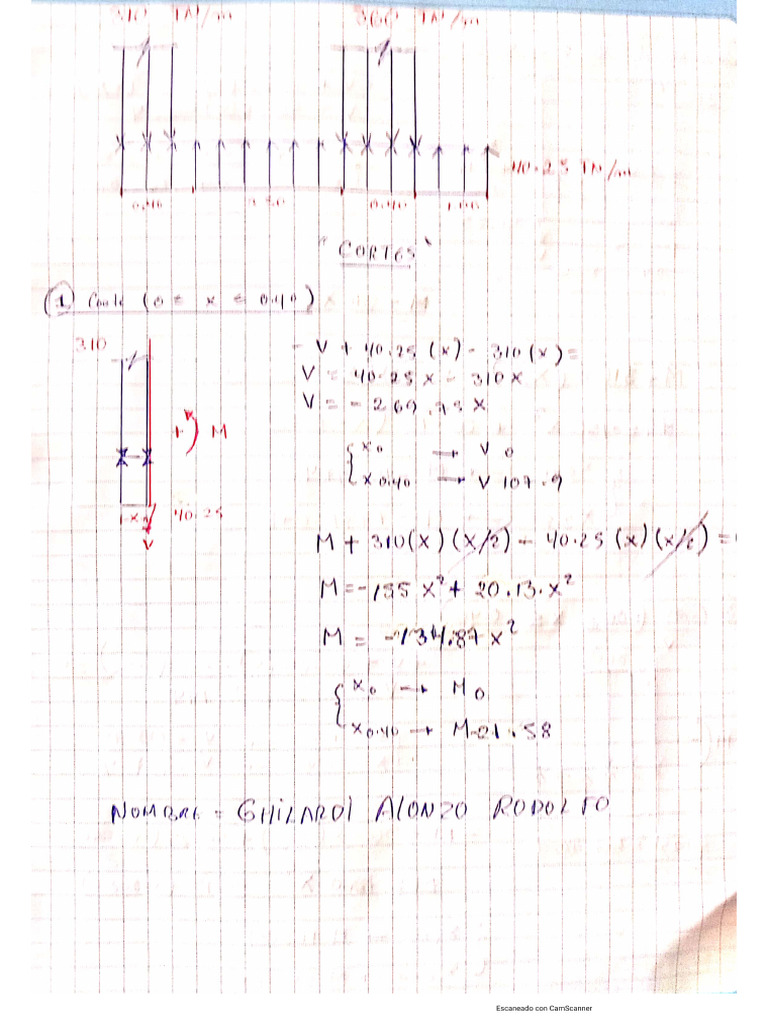 310 TN/m 360 TN/m
40.25 TN/m
0.40 0.40
"CORTES"
① Corte (0 ≤ x ≤ 0.40)
310
- V + 40.25 (x) - 310 (x) =
V = 40.25 x - 310 x
V = - 269.75 x
+ M
x0 → V 0
x0.40 → V 107.9
x 40.25
V
M + 310(x) (x/2) - 40.25 (x) (x/2) =
M = -155 x² + 20.13 . x²
M = -134.87 x²
x0 → M 0
x0.40 → M-21.58
NOMBRE = GHILARDI ALONZO RODOLFO
Escaneado con CamScanner